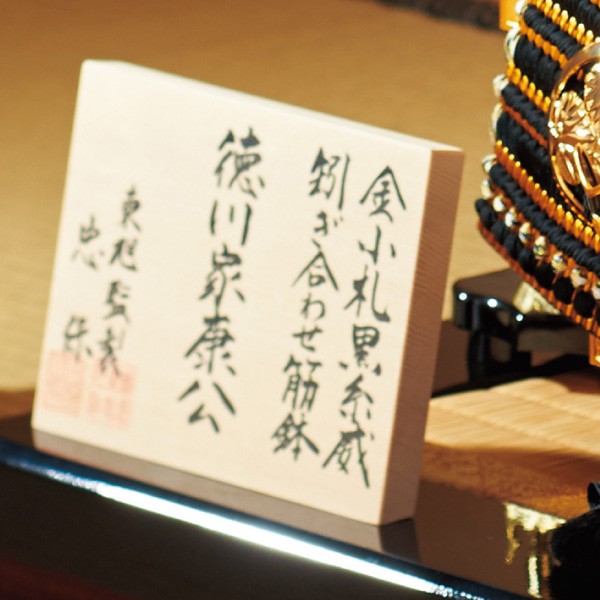 金小札黒糸威
矧ぎ合わせ筋鉢
徳川家康公
東旭監製
忠保